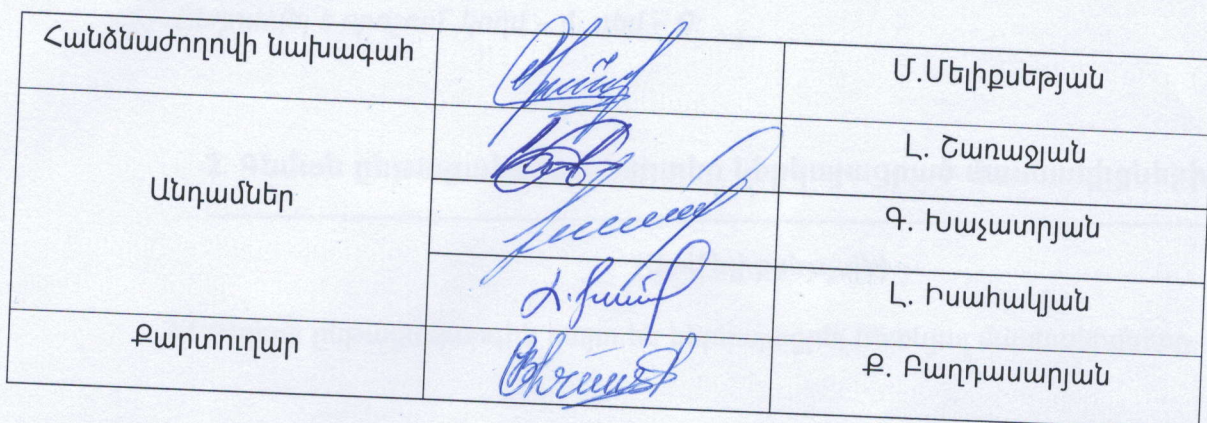 Հանձնաժողովի նախագահ
Մ.Մելիքսեթյան
Անդամներ
Լ. Շառաջյան
Գ. Խաչատրյան
Լ. Իսահակյան
Քարտուղար
Ք. Բաղդասարյան